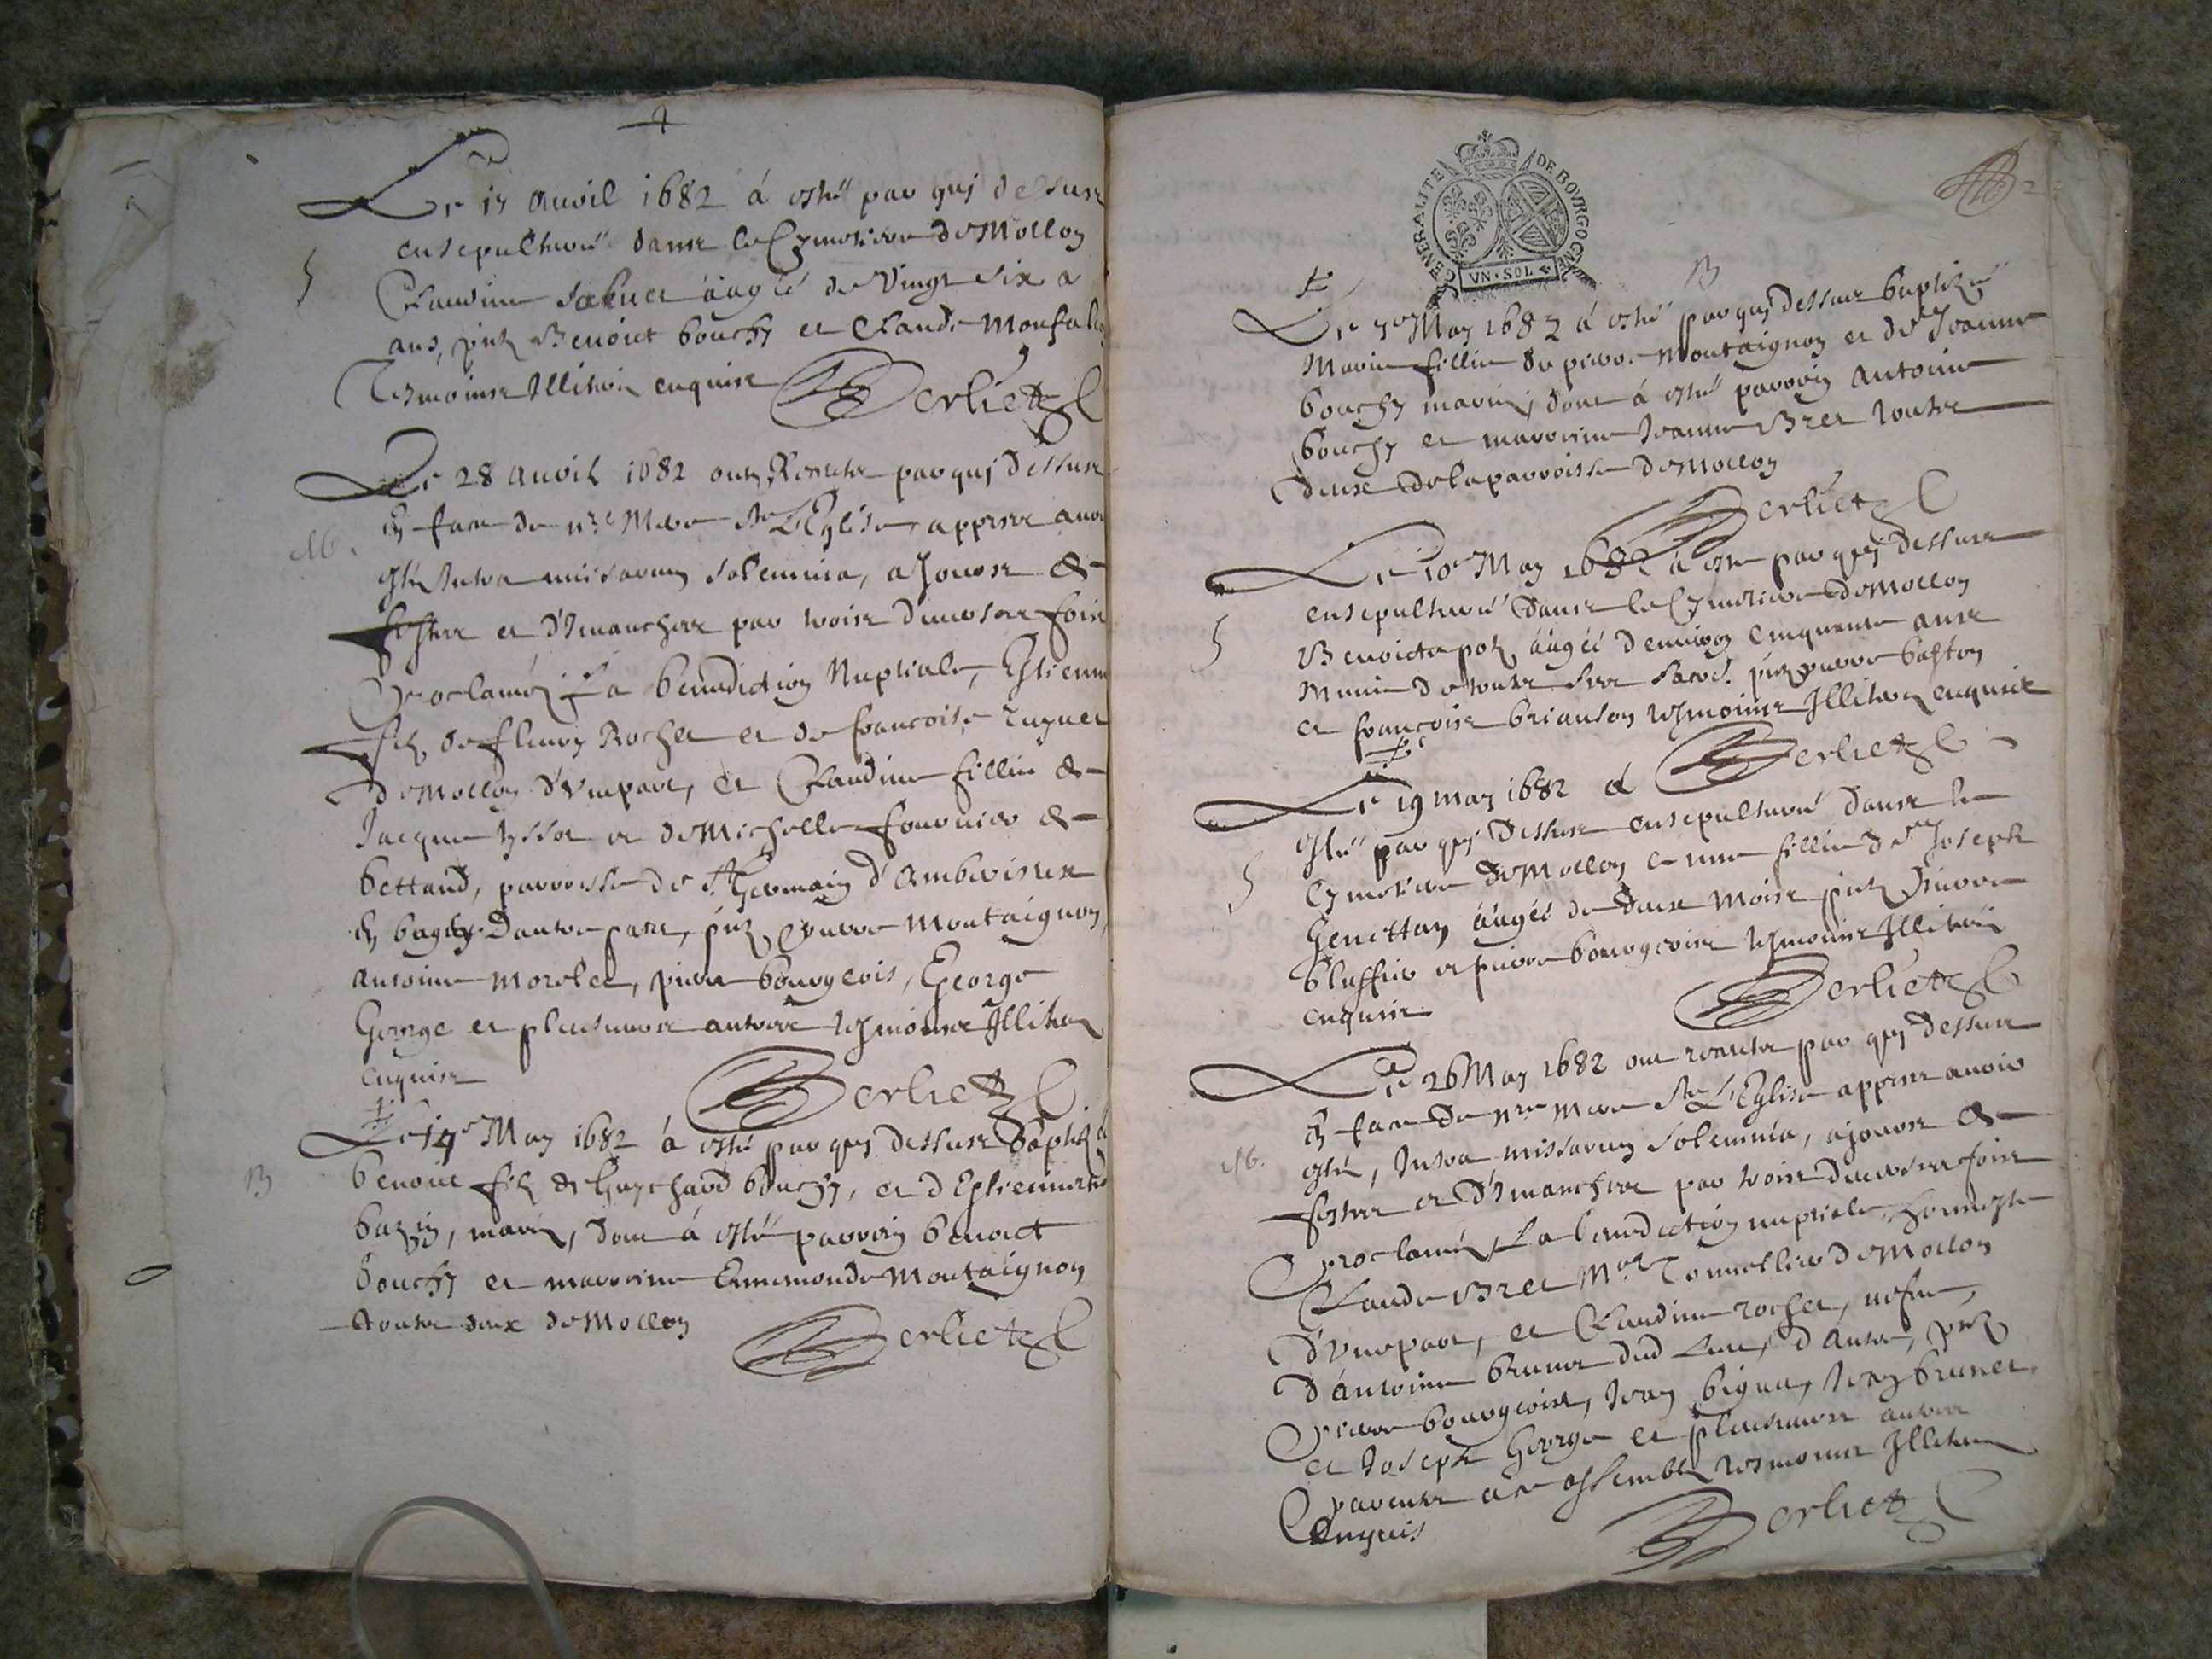 Le 15 Auvil 1682 á esté par quj dessus
ensepulturé dans le Cymetiere de Mollon
S
Claudine aagéé de Vingt six a
ans, pntz Benoict bouchy et Claude Monfal
Tesmoins Illiterez enquis Berliet
Le 28 Auvil 1682 ont Receu par quj dessus
M.
en face de nre Mere Ste L'Eglise, appres avoir
esté Intra missarum solemnia, a Jours de
festes et dimanches par trois diverses fois
Proclaméz La benediction Nuptiale, Estienne
filz de fleury Rochet et de francoise
de Mollon d'Une part, et Claudine fillie de
Jacque Tyssot et de Michelle fournier de
bettand, parroisse de St Germain d'Amberieux
en bugey D'autre part, pntz Pierre Montaignon,
Antoine Morelet, pierre bourgeois, George
George et plusieurs autres tesmoins Illiterez
enquis Berliet
Le 14e May 1682 á esté par quj dessus baptizé
B
benoict filz de Guychard bouchy, et d'Estiennette
bazin, mariéz, dont á esté parrein benoict
bouchy et marreine Ennemonde Montaignon
toutz deux de Mollon
Berliet
GENERALITE DE BOVRGOGNE
VN·SOL
2
B
Le May 1682 á esté par quj dessus baptizéé
Marie fillie de pierre Montaignon et de Jeanne
bouchy mariéz, dont á esté parrein Antoine
bouchy et marreine Jeanne Bret toutz
deux de la parroisse de Mollon
Berliet
Le 10e May 1682 á esté par quj dessus
S
ensepulturé dans le Cymetiere de Mollon
Benoicte aagéé d'environ Cinquante ans
Munie de toutz ses Sacrtz. pntz pierre baston
et francoise brianson tesmoins Illiterez enquis
Berliet
Le 19 May 1682 á
esté par quj dessus ensepulturé dans le
S
Cymetiere de Mollon une fillie de Joseph
Genettan aagéé de deux Mois pntz Pierre
bluffier et pierre bourgeois tesmoins Illiterez
enquis
Berliet
Le 26 May 1682 ont receu par quj dessus
M.
en face de nre mere Ste L'Eglise appres avoir
esté, Intra missarum solemnia, a jours de
festes et dimanches par trois diverses fois
Proclaméz, La benediction nuptiale, honneste
Claude Bret Me Tonnellier de Mollon
d'Une part, et Claudine rochet, vefve,
d'Antoine brunet dud Lieu, d'Autre, pntz
Pierre bourgeois, Jean bignet, Jean brunet,
et Joseph George et plusieurs autres
Parents a ce assemblez tesmoins Illiterez
Enquis
Berliet